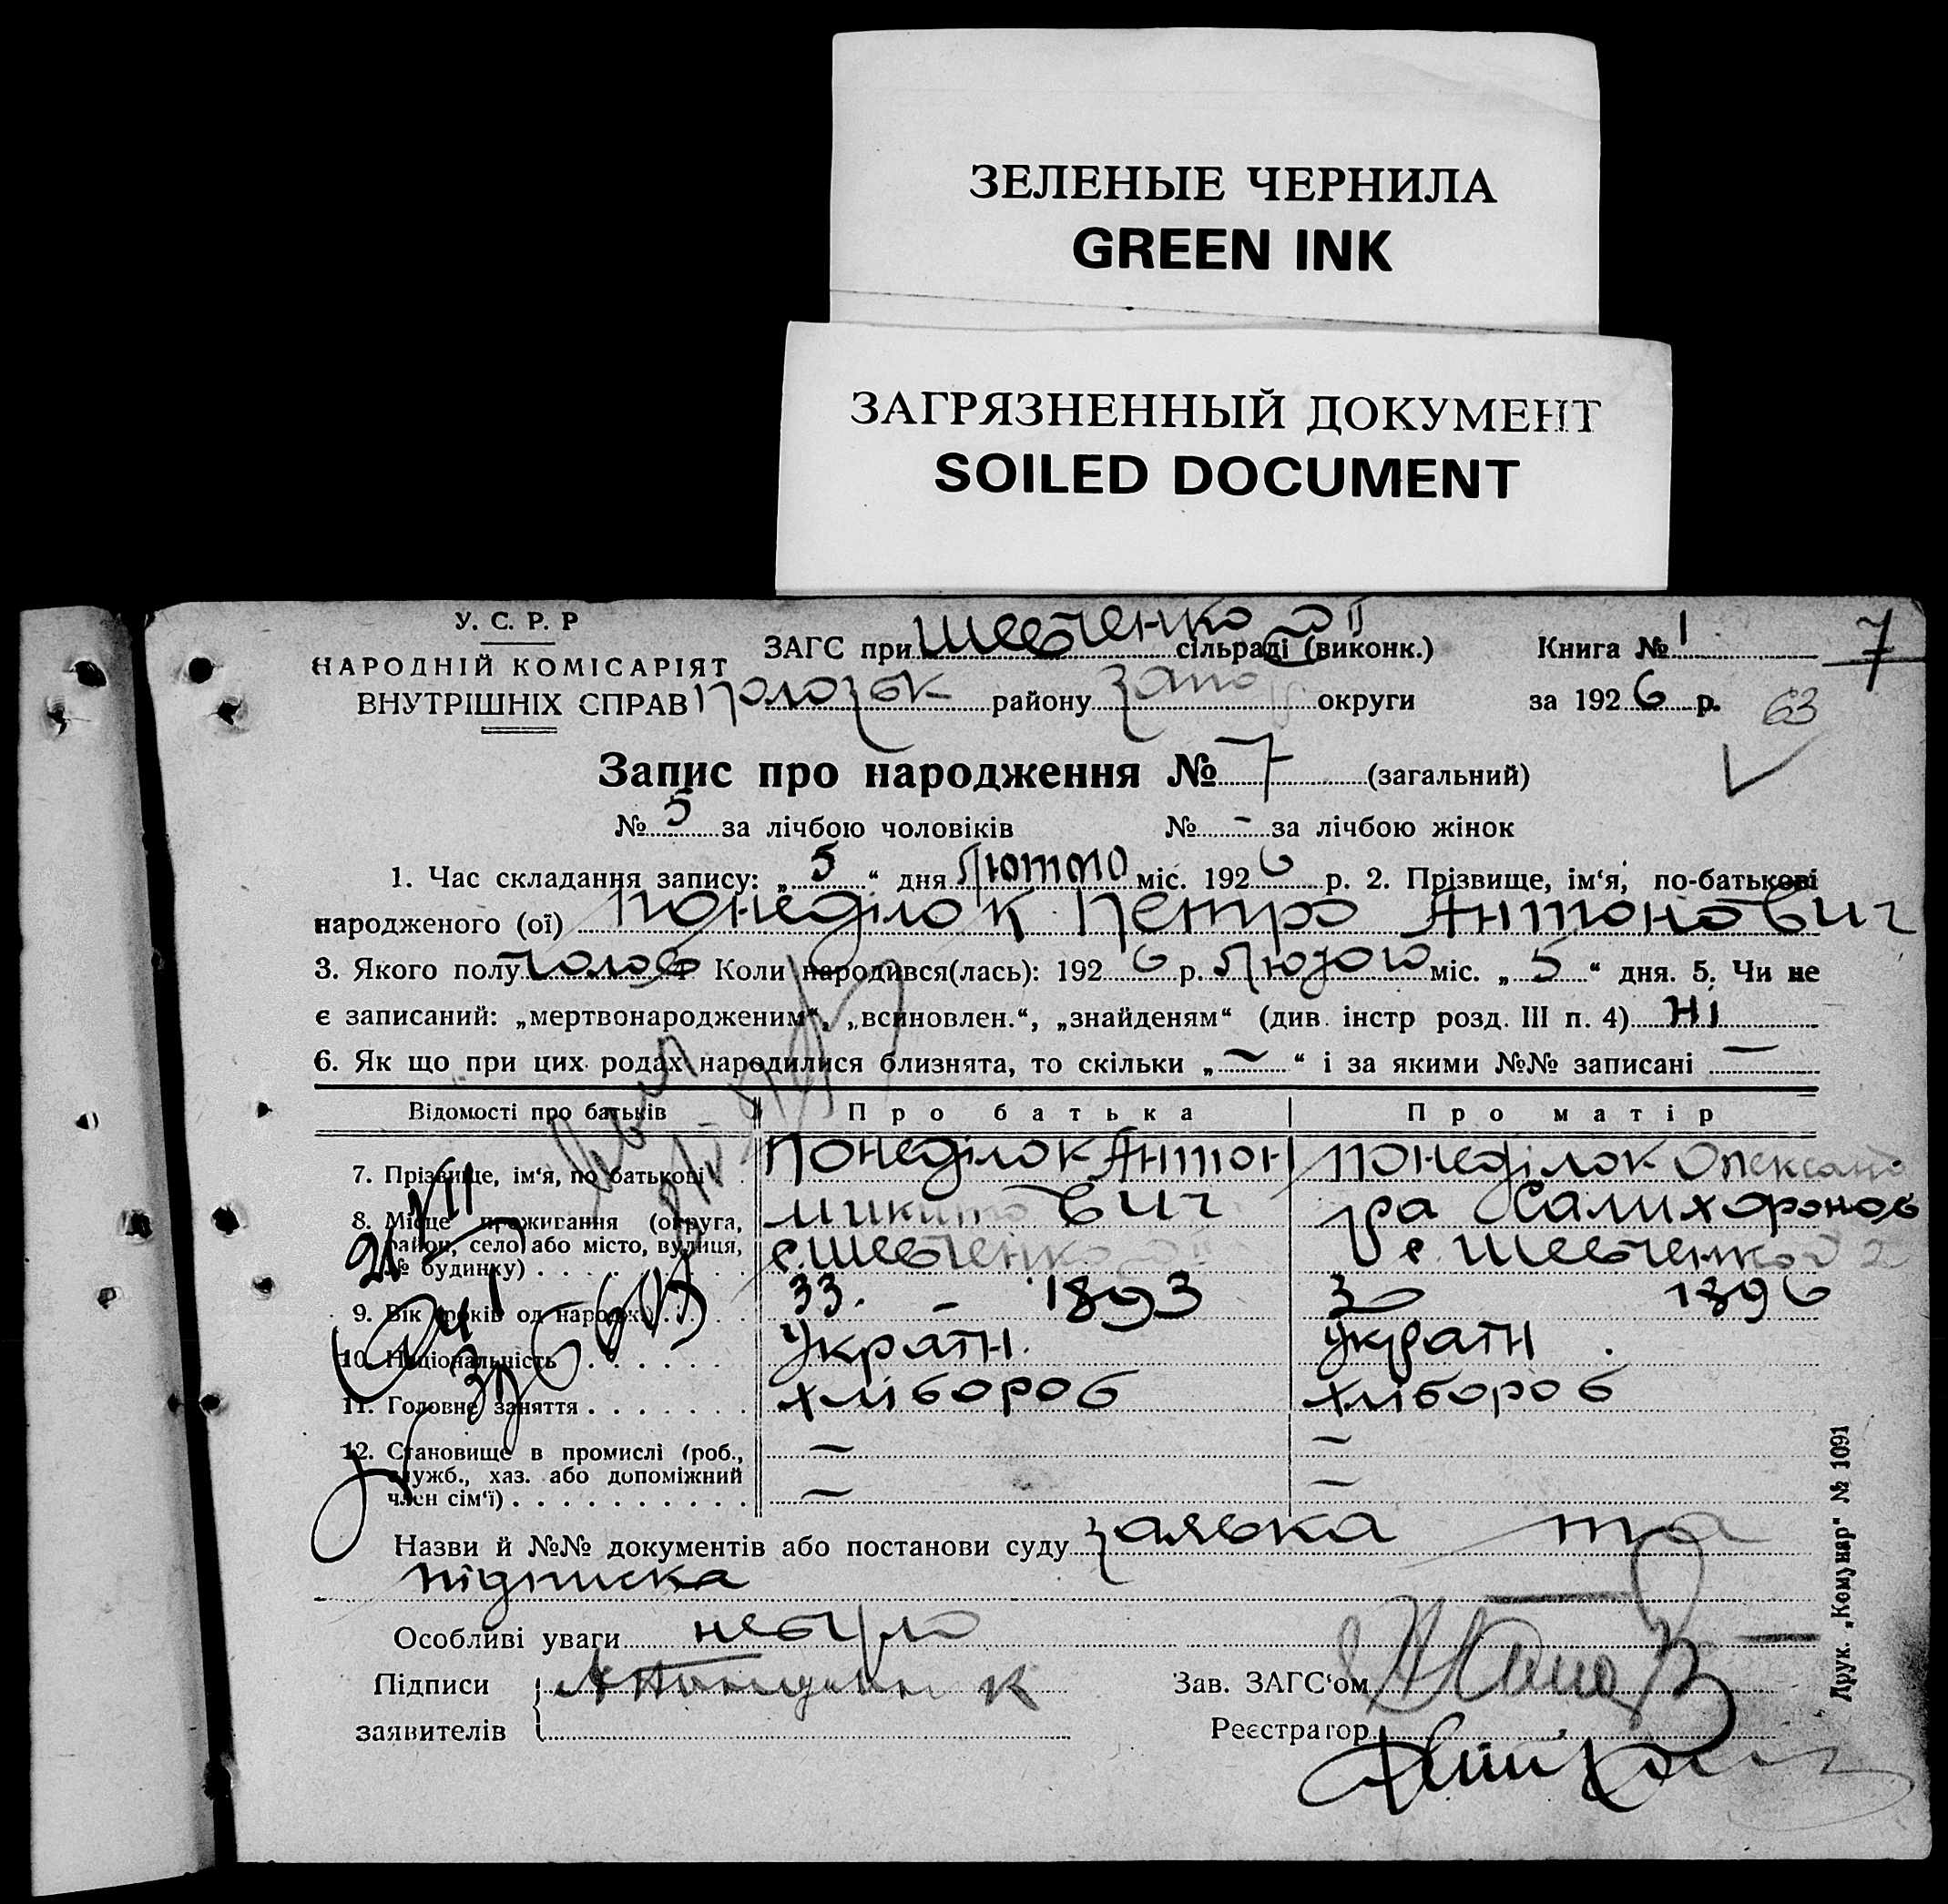 ЗЕЛЕНЫЕ ЧЕРНИЛА
GREEN INK
ЗАГРЯЗНЕННЫЙ ДОКУМЕНТ
SOILED DOCUMENT
У. С. Р. Р
НАРОДНІЙ КОМІСАРІЯТ
ВНУТРІШНІХ СПРАВ
ЗАГС при Шевченко II сільраді (виконк.) Книга № 1 7
Пологзьк району Запо округи за 1926 р. 63
Запис про народження № 7 (загальний)
№ 5 за лічбою чоловіків № - за лічбою жінок
1. Час складання запису: „5“ дня Лютого міс. 1926 р. 2. Прізвище, ім‘я, по-батькові
народженого (ої) Понеділок Петро Антонович
3. Якого полу чолов 4 Коли народився(лась): 1926 р. Лютого міс. „5“ дня. 5. Чи не
є записаний: „мертвонародженим“, „всиновлен.“, „знайденям“ (див. інстр розд. III п. 4) Ні
6. Як що при цих родах народилися близнята, то скільки „—“ і за якими №№ записані —
Відомості про батьків Про батька Про матір
7. Прізвище, ім‘я, по батькові Понеділок Антон Понеділок Олександ
8. Місце проживання (округа, Микитович ра
район, село або місто, вулиця, с. Шевченко II с. Шевченко 2
№ будинку)
9. Вік (років од народж.) 33. - 1893 30 1896
10. Національність Україн. Україн.
11. Головне заняття хлібороб хлібороб
12. Становище в промислі (роб., — —
служб., хаз. або допоміжний
член сім‘ї) — —
Назви й №№ документів або постанови суду заявка та
підписка
Особливі уваги небуло
Підписи Зав. ЗАГС‘ом
заявителів Реєстратор
Друк. „Комунар“ № 1091